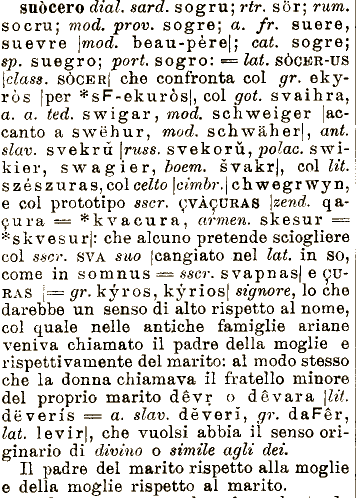 suòcero dial. sard. sogru; rtr. sör; rum.
socru; mod. prov. sogre; a. fr. suere,
suevre |mod. beau-père|; cat. sogre;
sp. suegro; port. sogro: = lat. SÒCER-US
|class. SÒCER| che confronta col gr. eky-
ròs |per *sF-ekuròs|, col got. svaihra,
a. a. ted. swigar, mod. schweiger |ac-
canto a swëhur, mod. schwäher|, ant.
slav. svekrŭ |russ. svekorŭ, polac. swi-
kier, swagier, boem. švakr|, col lit.
szészuras, col celto |cimbr.| chwegrwyn,
e col prototipo sscr. ÇVÀÇURAS |zend. qa-
çura = *kvacura, armen. skesur =
*skvesur|: che alcuno pretende sciogliere
col sscr. SVA suo |cangiato nel lat. in so,
come in somnus = sscr. svapnas| e ÇU-
RAS |= gr. kýros, kýrios| signore, lo che
darebbe un senso di alto rispetto al nome,
col quale nelle antiche famiglie ariane
veniva chiamato il padre della moglie e
rispettivamente del marito: al modo stesso
che la donna chiamava il fratello minore
del proprio marito dêvr̥ o dêvara |lit.
dëverís = a. slav. dĕveri, gr. daFêr,
lat. levir|, che vuolsi abbia il senso ori-
ginario di divino o simile agli dei.
Il padre del marito rispetto alla moglie
e della moglie rispetto al marito.